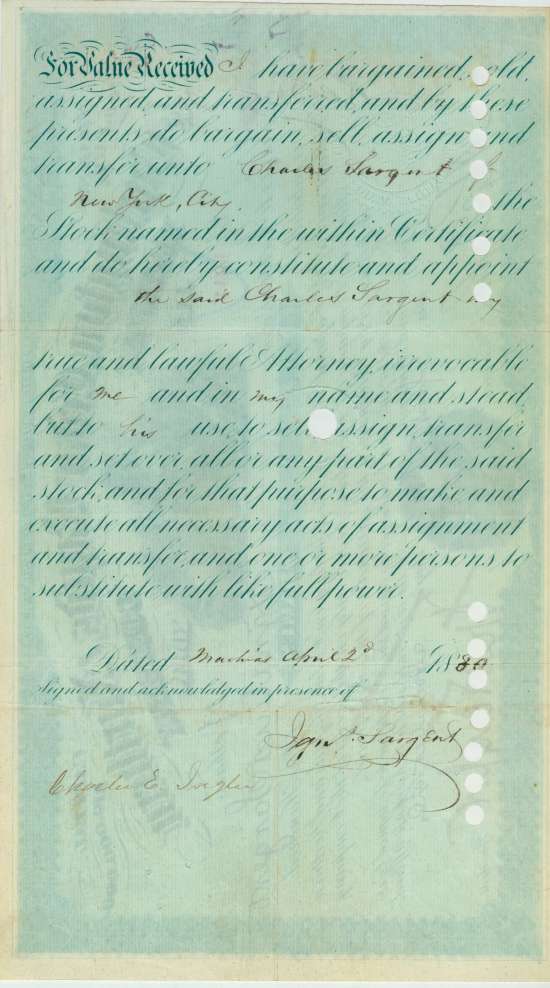 For Value Received I have bargained, sold,
assigned, and transferred, and by these
presents do bargain, sell, assign and
transfer unto Charles Sargent of
New York, City, the
Stock named in the within Certificate
and do hereby constitute and appoint
the said Charles Sargent my
true and lawful Attorney, irrevocable
for me and in my name and stead,
but to his use, to sell, assign, transfer
and set over, all or any part of the said
stock, and for that purpose to make and
execute all necessary acts of assignment
and transfer, and one or more persons to
substitute with like full power.
Dated Machias April 2d 18
Signed and acknowledged in presence of
Igns. Sargent
Charles E.